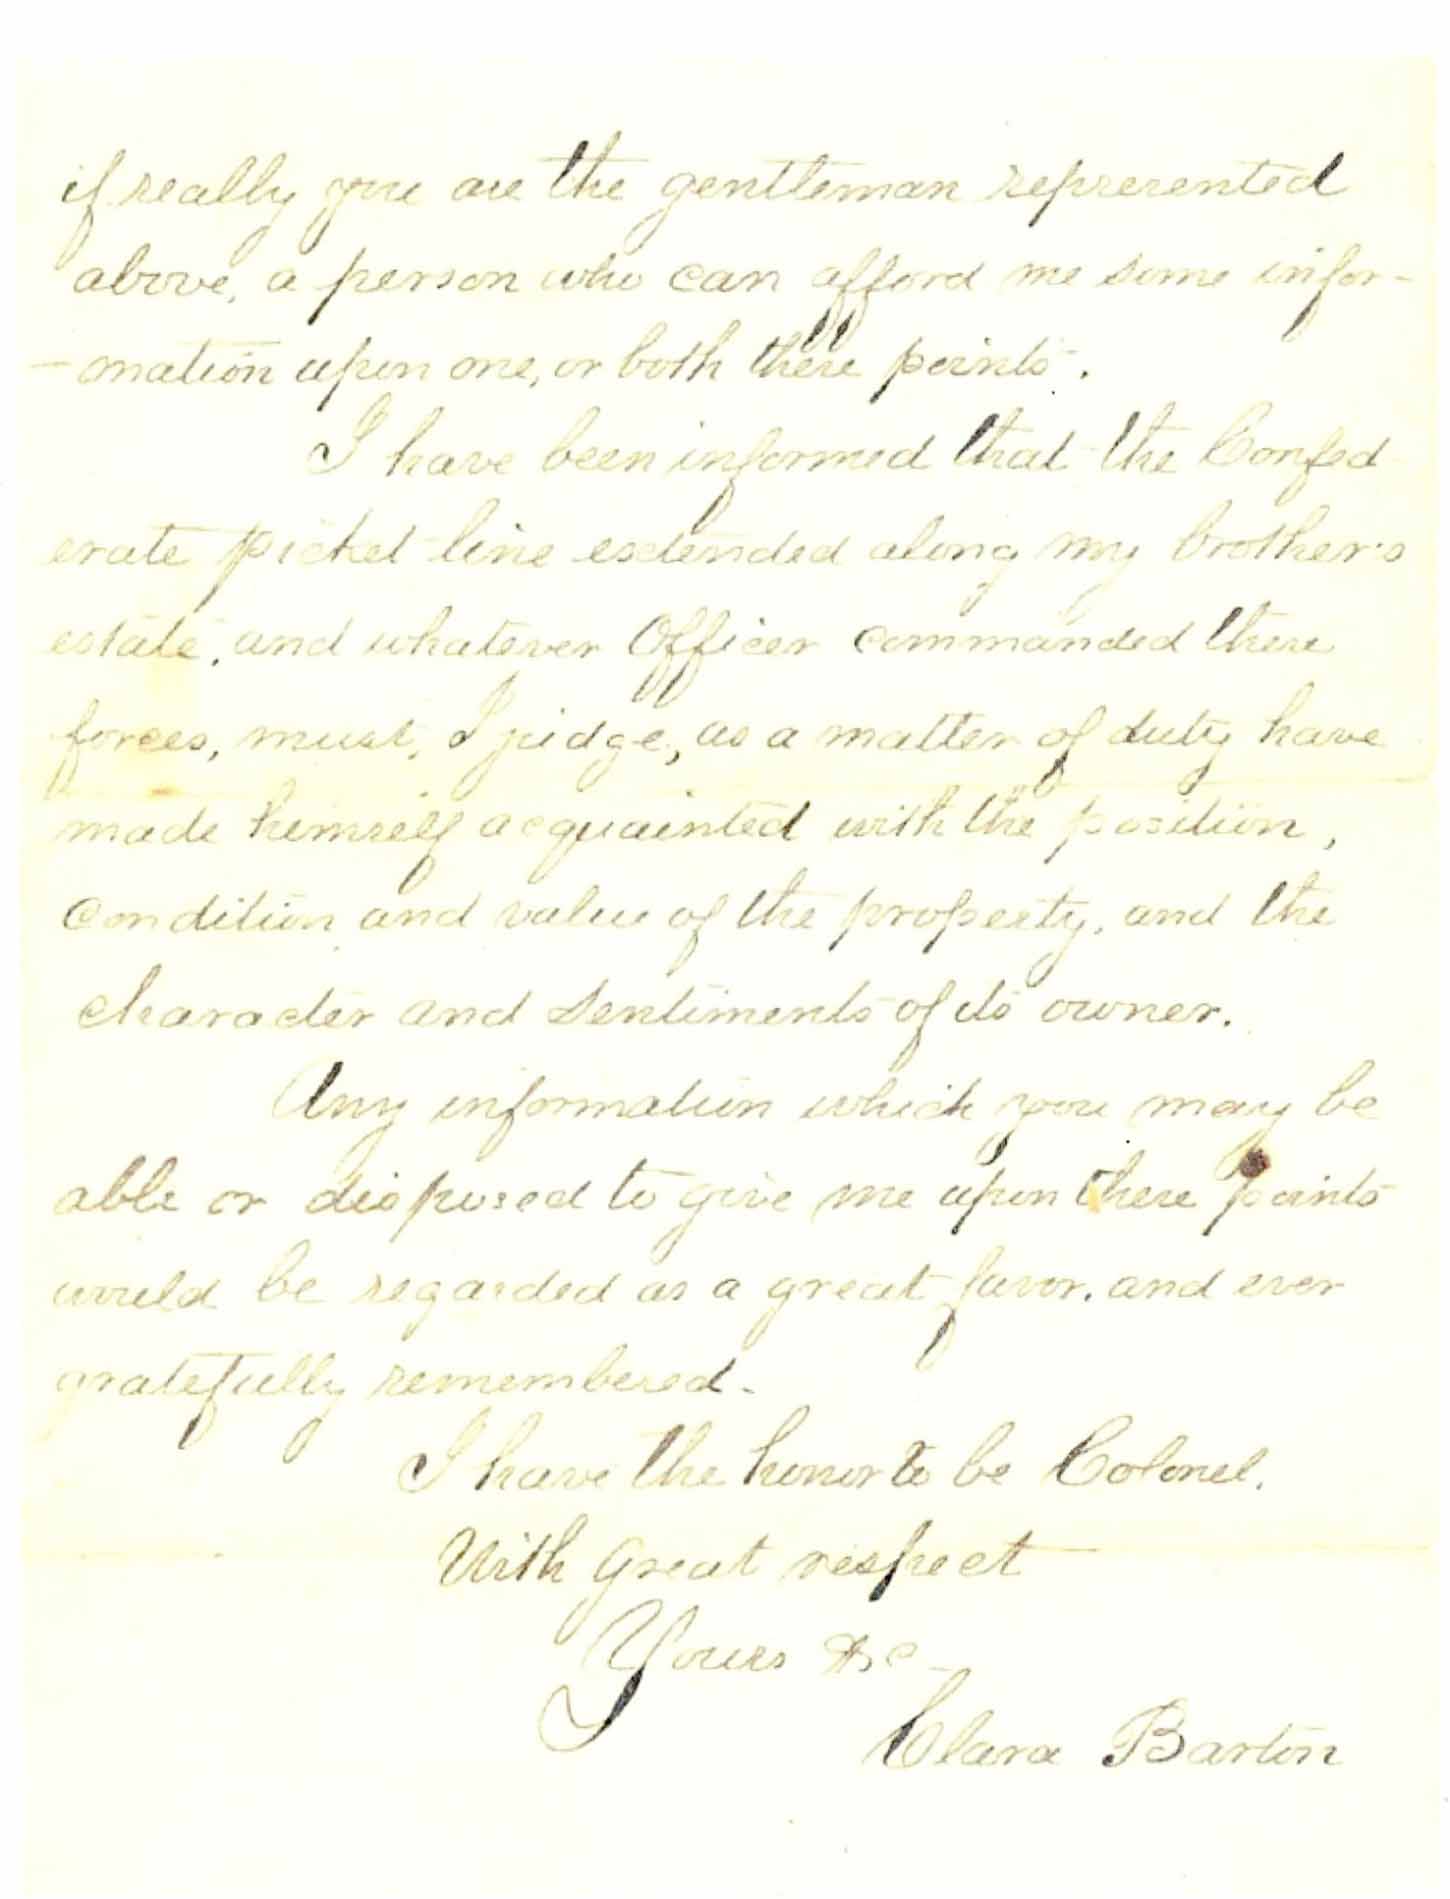 if really you are the gentleman represented
above, a person who can afford me some infor-
-mation upon one, or both these points.
I have been informed that the Confed
erate picket line extended along my brother's
estate, and whatever Officer commanded these
forces, must, I judge, as a matter of duty have
made himself acquainted with the position,
condition and value of the property, and the
character and sentiments of its owner.
Any information which you may be
able or disposed to give me upon these points
would be regarded as a great favor, and ever
gratefully remembered.
I have the honor to be Colonel,
With great respect
Yours &c
Clara Barton